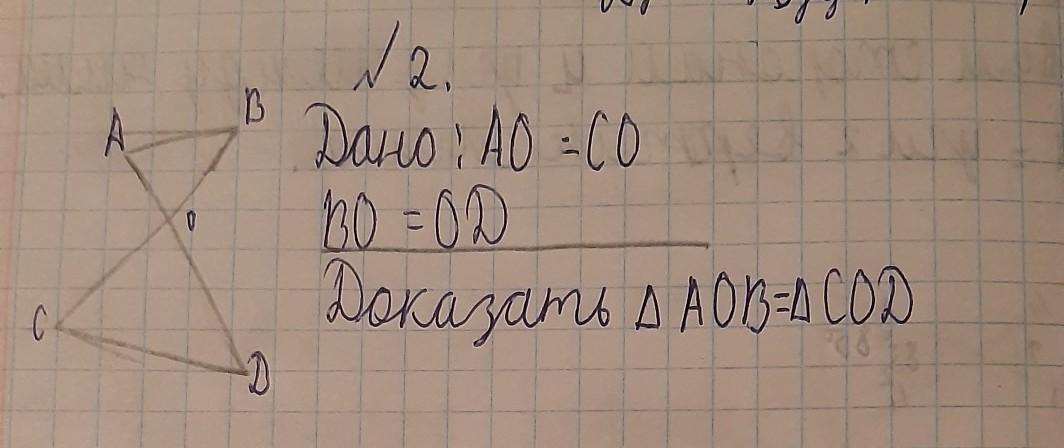 № 2.
A
B
Дано: AO = CO
O
BO = OD
Доказать Δ AOB = Δ COD
C
D